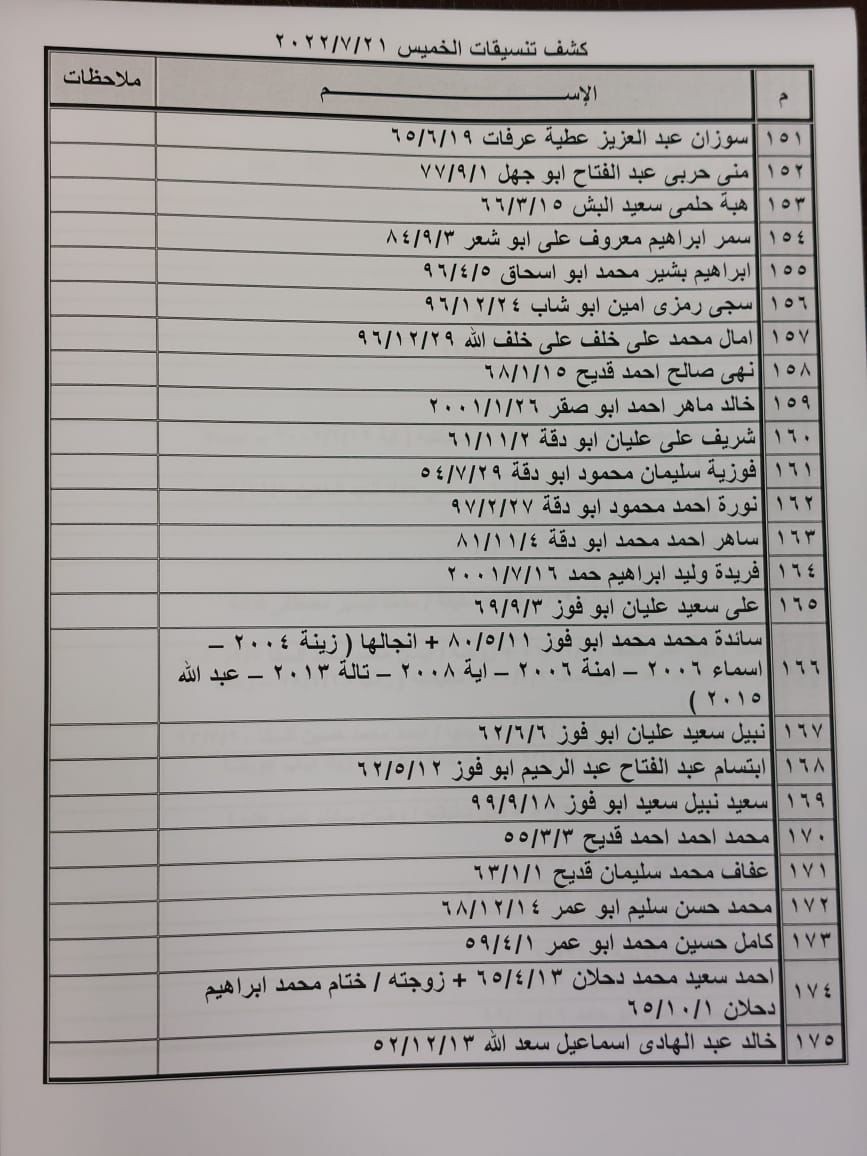 كشف تنسيقات الخميس ٢٠٢٢/٧/٢١
م الإســـــــــم ملاحظات
١٥١ سوزان عبد العزيز عطية عرفات ٦٥/٦/١٩
١٥٢ منى حربى عبد الفتاح ابو جهل ٧٧/٩/١
١٥٣ هبة حلمى سعيد البش ٦٦/٣/١٥
١٥٤ سمر ابراهيم معروف على ابو شعر ٨٤/٩/٣
١٥٥ ابراهيم بشير محمد ابو اسحاق ٩٦/٤/٥
١٥٦ سجى رمزى امين ابو شاب ٩٦/١٢/٢٤
١٥٧ امال محمد على خلف على خلف الله ٩٦/١٢/٢٩
١٥٨ نهى صالح احمد قديح ٦٨/١/١٥
١٥٩ خالد ماهر احمد ابو صقر ٢٠٠١/١/٢٦
١٦٠ شريف على عليان ابو دقة ٦١/١١/٢
١٦١ فوزية سليمان محمود ابو دقة ٥٤/٧/٢٩
١٦٢ نورة احمد محمود ابو دقة ٩٧/٢/٢٧
١٦٣ ساهر احمد محمد ابو دقة ٨١/١١/٤
١٦٤ فريدة وليد ابراهيم حمد ٢٠٠١/٧/١٦
١٦٥ على سعيد عليان ابو فوز ٦٩/٩/٣
سائدة محمد محمد ابو فوز ٨٠/٥/١١ + انجالها ( زينة ٢٠٠٤ –
١٦٦ اسماء ٢٠٠٦ – امنة ٢٠٠٦ – اية ٢٠٠٨ – تالة ٢٠١٣ – عبد الله
٢٠١٥ )
١٦٧ نبيل سعيد عليان ابو فوز ٦٢/٦/٦
١٦٨ ابتسام عبد الفتاح عبد الرحيم ابو فوز ٦٢/٥/١٢
١٦٩ سعيد نبيل سعيد ابو فوز ٩٩/٩/١٨
١٧٠ محمد احمد احمد قديح ٥٥/٣/٣
١٧١ عفاف محمد سليمان قديح ٦٣/١/١
١٧٢ محمد حسن سليم ابو عمر ٦٨/١٢/١٤
١٧٣ كامل حسين محمد ابو عمر ٥٩/٤/١
١٧٤ احمد سعيد محمد دحلان ٦٥/٤/١٣ + زوجته / ختام محمد ابراهيم
دحلان ٦٥/١٠/١
١٧٥ خالد عبد الهادى اسماعيل سعد الله ٥٢/١٢/١٣